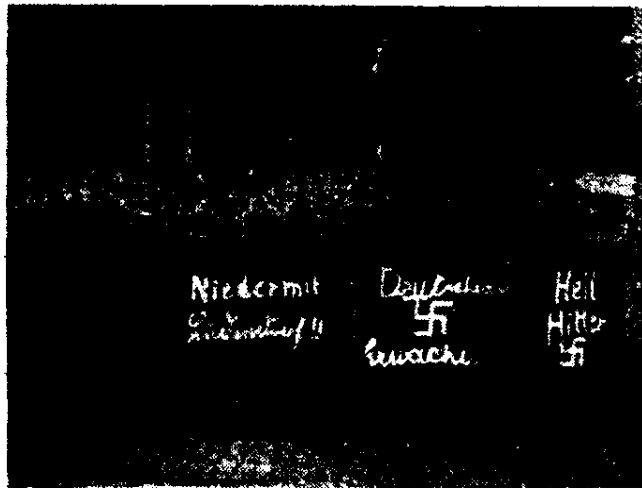 Niedermit
Deutschland
Erwache.
Heil
Hitler